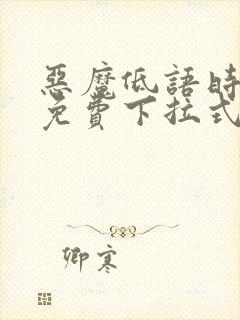 惡魔低語時
免費下拉式
卿寒